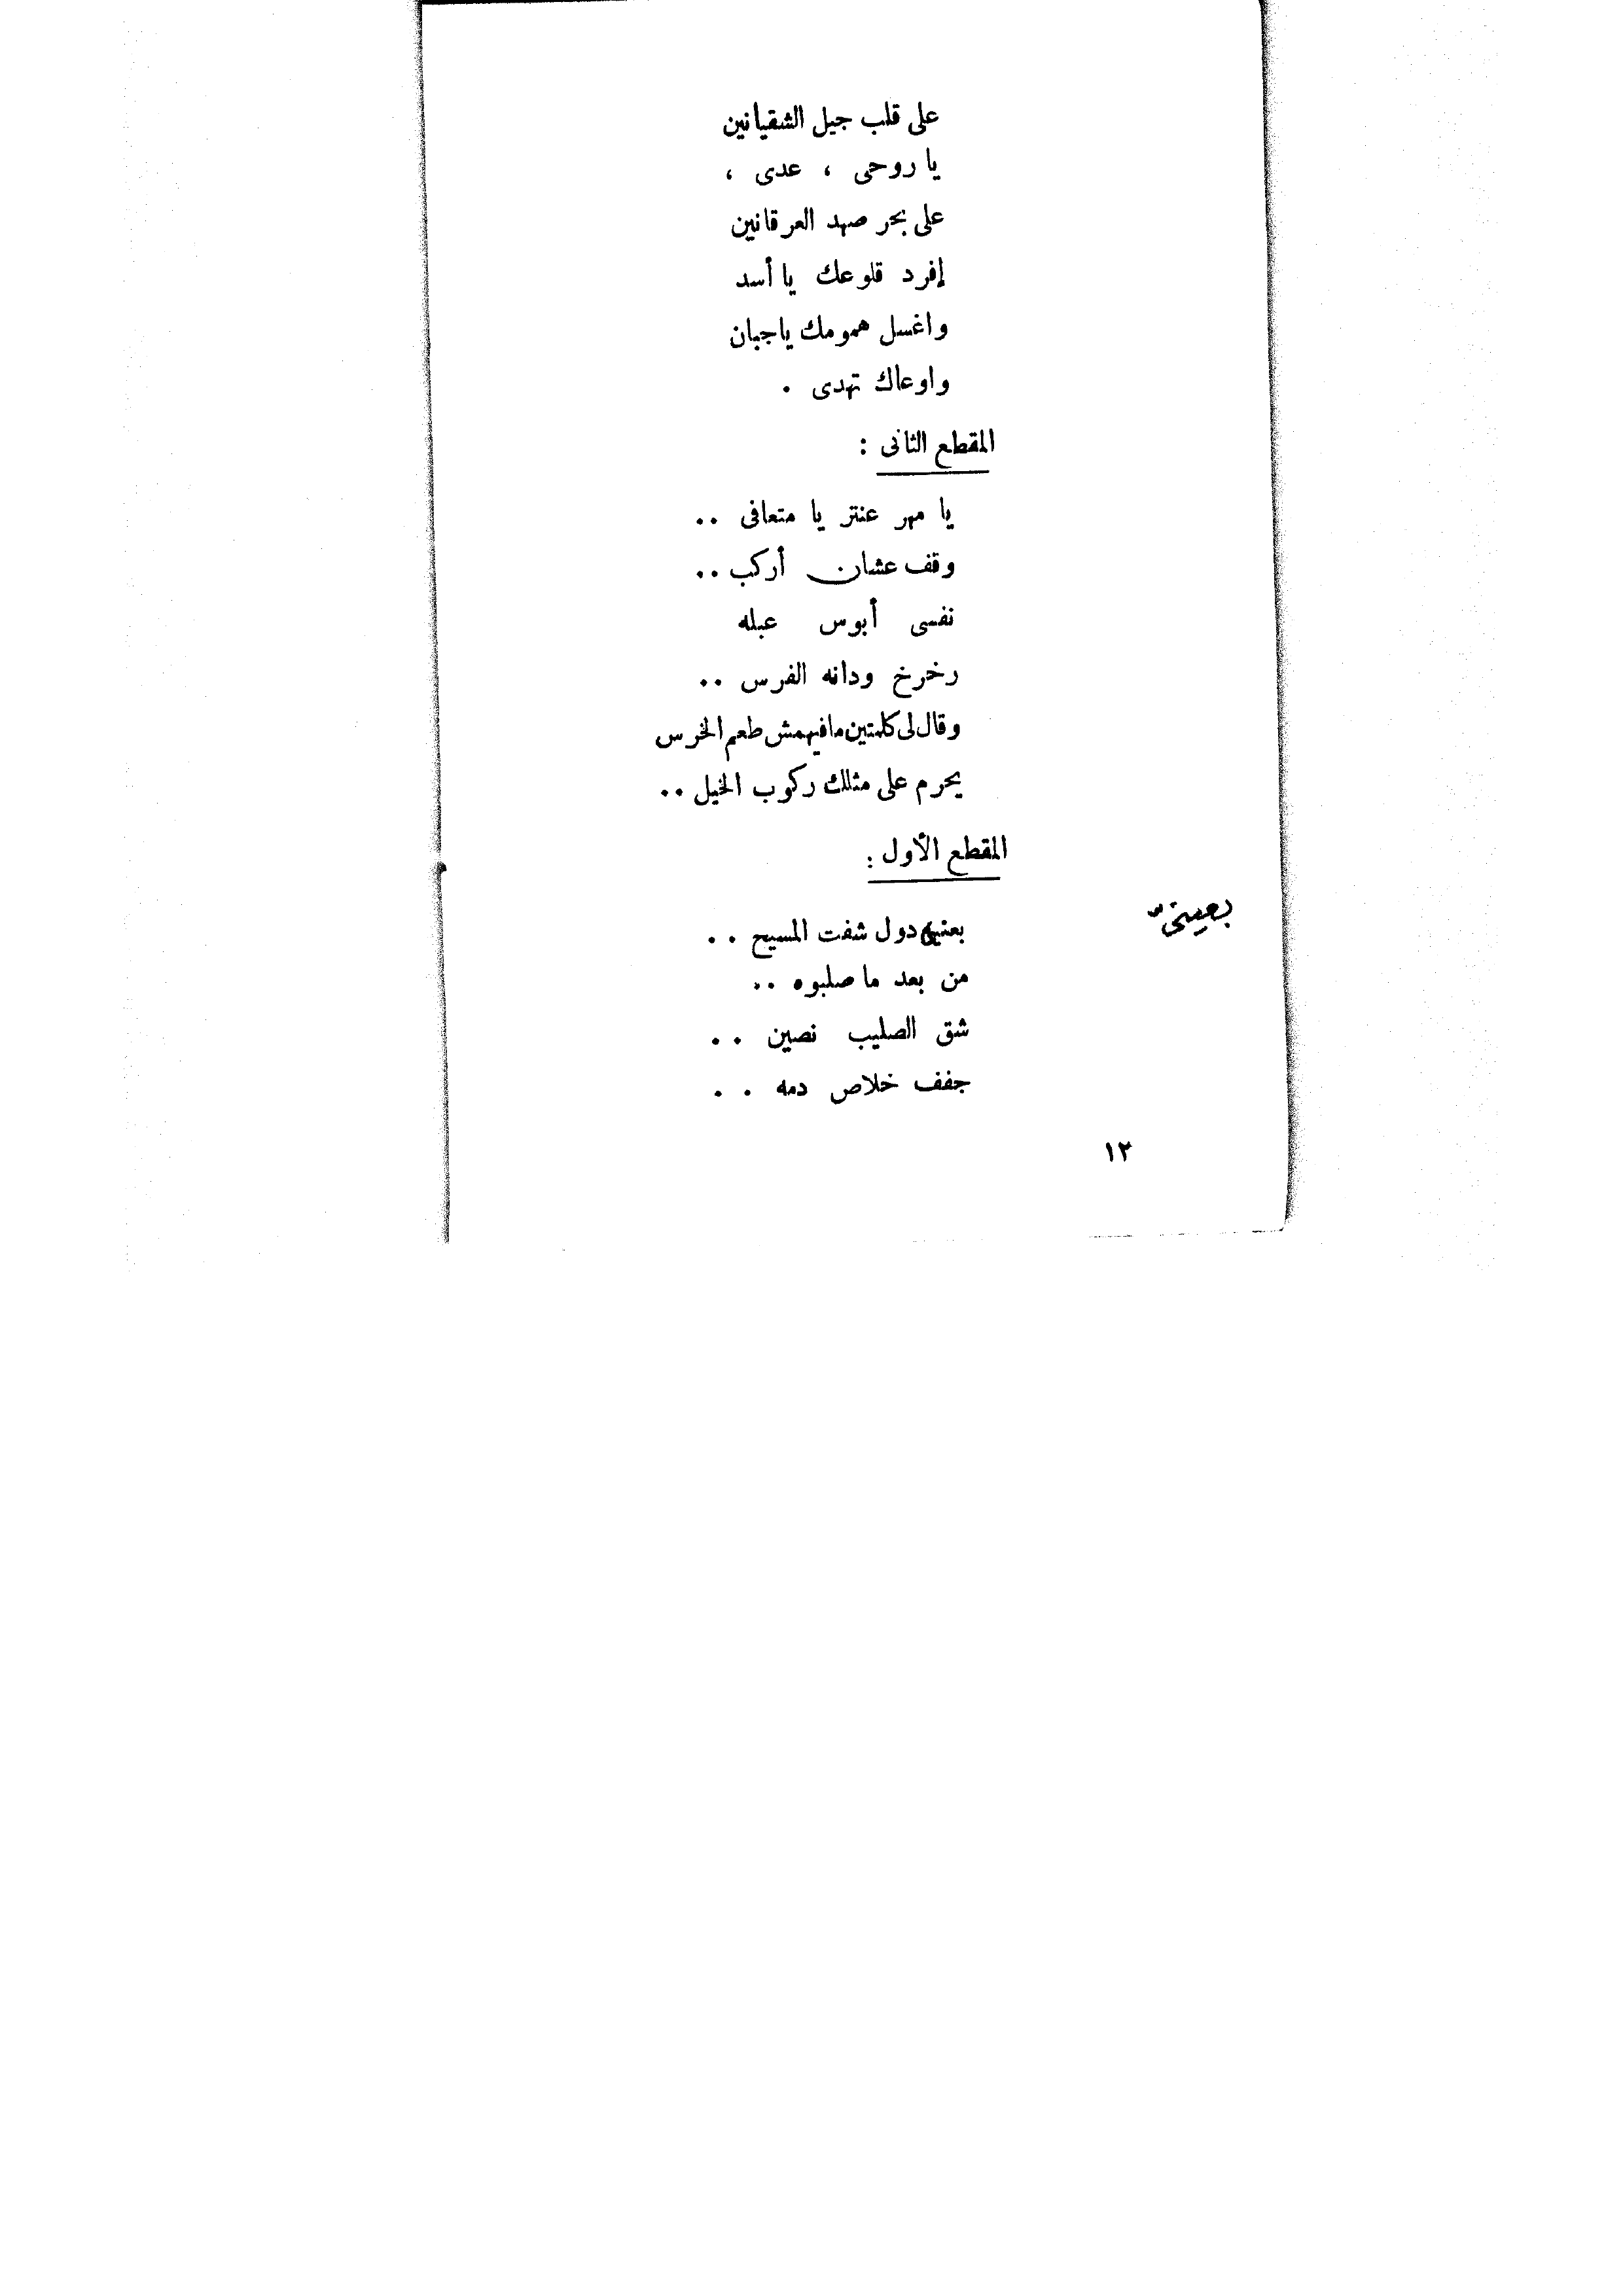 على قلب جيل الشقيانين
يا روحى ، عدى ،
على بحر صهد العرقانين
إفرد قلوعك يا أسد
واغسل همومك ياجبان
واوعاك تهدى .
المقطع الثانى :
يا مهر عنتر يا متعافى ..
وقف عشان أركب ..
نفسى أبوس عبله
رخرخ ودانه الفرس ..
وقال لى كلمتين مافيهمش طعم الخرس
يحرم على مثلك ركوب الخيل ..
المقطع الأول :
دول شفت المسيح ..
بعينىّ
من بعد ما صلبوه ..
شق الصليب نصين ..
جفف خلاص دمه ..
١٢